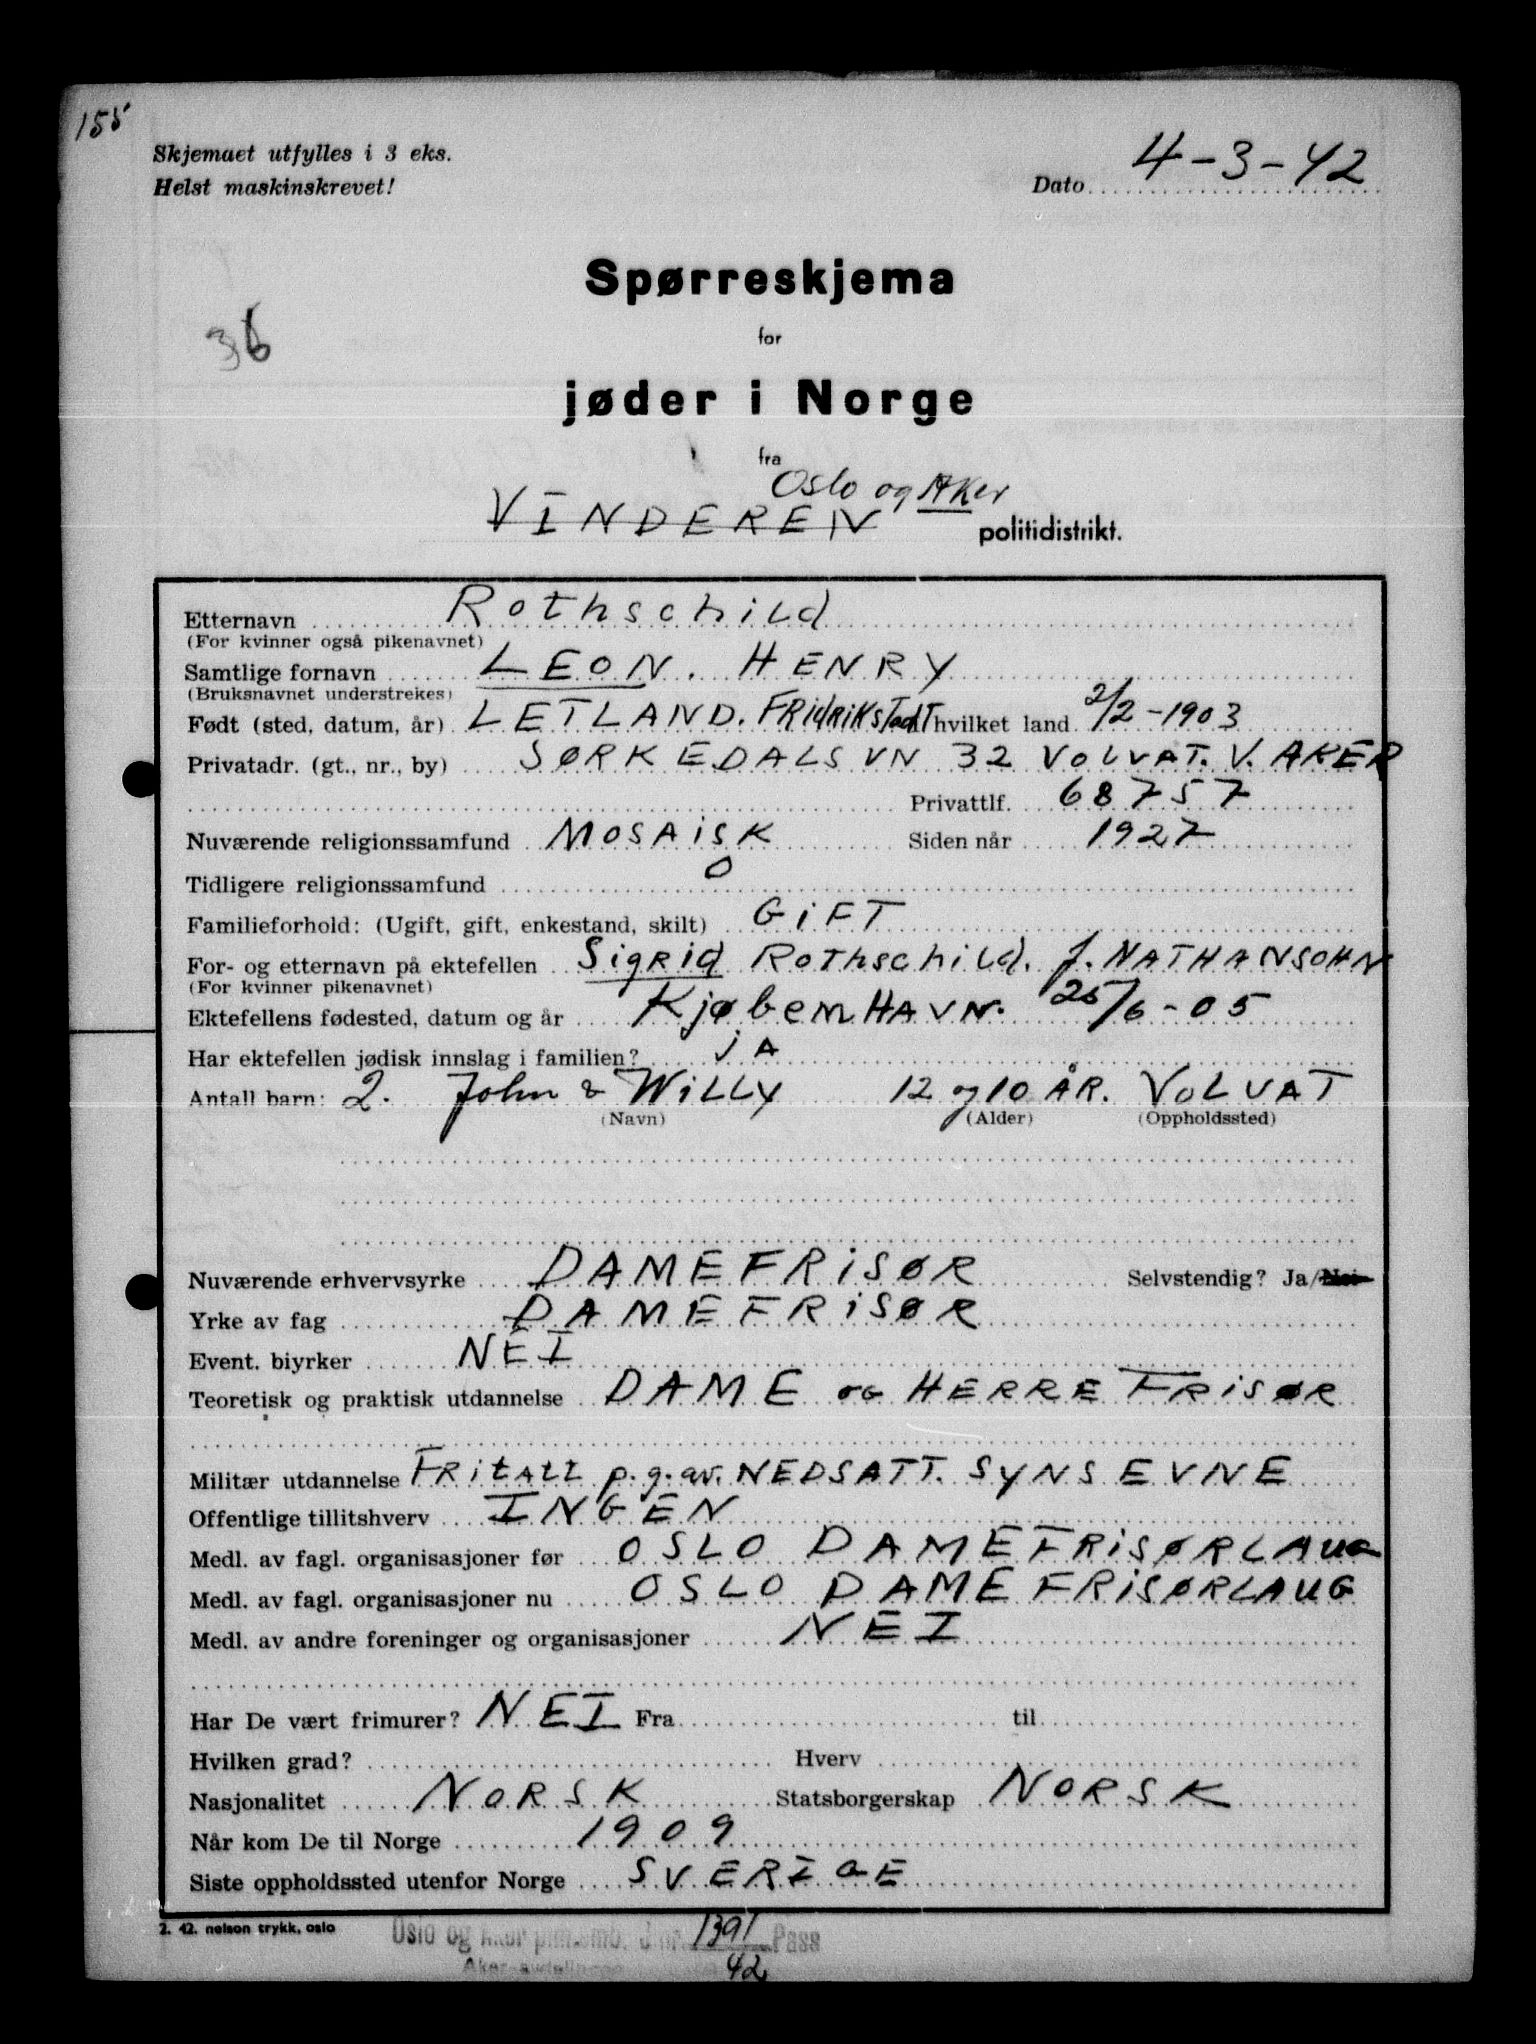 155
Skjemaet utfylles i 3 eks.
Helst maskinskrevet!
Dato 4-3-42
Spørreskjema
for
36
jøder i Norge
fra
Oslo og Aker
VINDEREN politidistrikt.
Etternavn Rothschild
(For kvinner også pikenavnet)
Samtlige fornavn LEON. HENRY
(Bruksnavnet understrekes)
Født (sted, datum, år) LETLAND. FRidRiKsTadT hvilket land 2/2-1903
Privatadr. (gt., nr., by) SØRKEDALSVN 32 VOLVAT. V. AKER
Privattlf. 68757
Nuværende religionssamfund MOSAiSK Siden når 1927
Tidligere religionssamfund O
Familieforhold: (Ugift, gift, enkestand, skilt) GiFT
For- og etternavn på ektefellen SigRid Rothschild. f. NATHANSOHN
(For kvinner pikenavnet)
Ektefellens fødested, datum og år KjøbenHAVN. 25/6-05
Har ektefellen jødisk innslag i familien? jA
Antall barn: 2. John & WiLLy 12 og 10 ÅR. VOLVAT
(Navn) (Alder) (Oppholdssted)
Nuværende erhvervsyrke DAMEFRiSØR Selvstendig? Ja/Nei
Yrke av fag DAMEFRiSØR
Event. biyrker NEI
Teoretisk og praktisk utdannelse DAME og HERREFRiSØR
Militær utdannelse FRitAtt p.g.av. NEDSATT. SYNSEVNE
Offentlige tillitshverv INGEN
Medl. av fagl. organisasjoner før OSLO DAMEFRiSØRLAUG
Medl. av fagl. organisasjoner nu OSLO DAMEFRiSØRLAUG
Medl. av andre foreninger og organisasjoner NEI
Har De vært frimurer? NEI Fra til
Hvilken grad? Hverv
Nasjonalitet NORSK Statsborgerskap NORSK
Når kom De til Norge 1909
Siste oppholdssted utenfor Norge SVERIGE
2. 42. nelson trykk, oslo
Oslo og Aker 1391 Pass
42